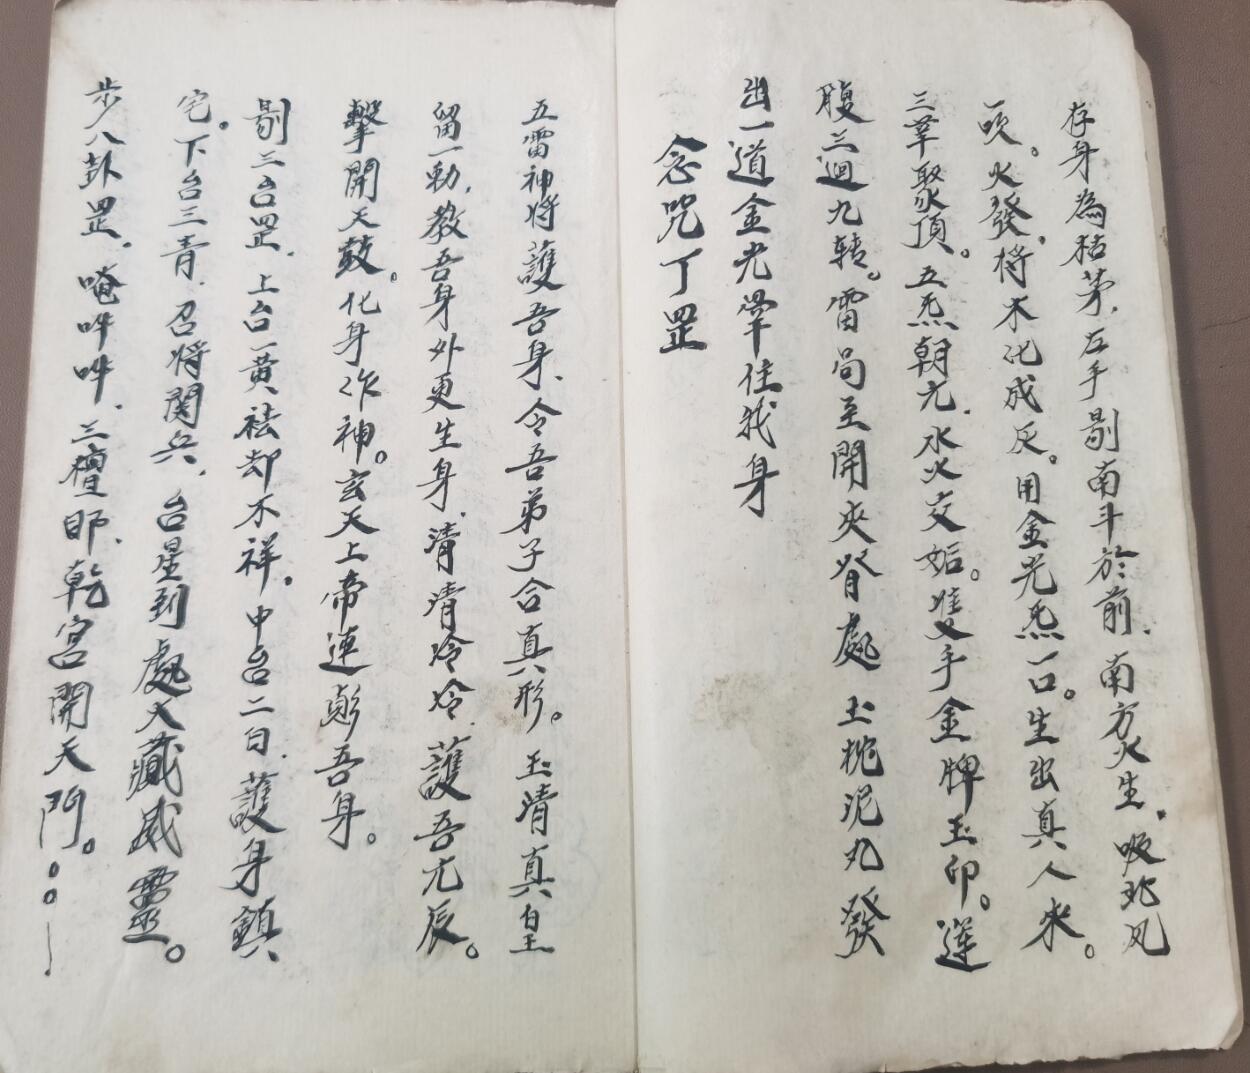 存身為枯茅，左手剔南斗於前，南方火生，吸巽风
吹。火發，將木化成灰。用金光炁一口。生出真人來。
三華聚頂。五炁朝元，水火交姤。雙手金牌玉印。運
腹三迴九转。雷局至開夾脊處 土桃泥丸發
出一道金光罩住我身
念咒丁罡
五雷神将護吾身，令吾弟子合真形。玉清真皇
留一勅，教吾身外更生身，清清冷冷，護吾元辰。
擊開天鼓。化身作神。玄天上帝連彭吾身。
剔三台罡，上台一黄，祛却不祥，中台二白，護身鎮
宅。下台三青，召将関兵，台星到處大藏威靈。
步八卦罡，唵吽吽，三檀耶，乾宮開天門。